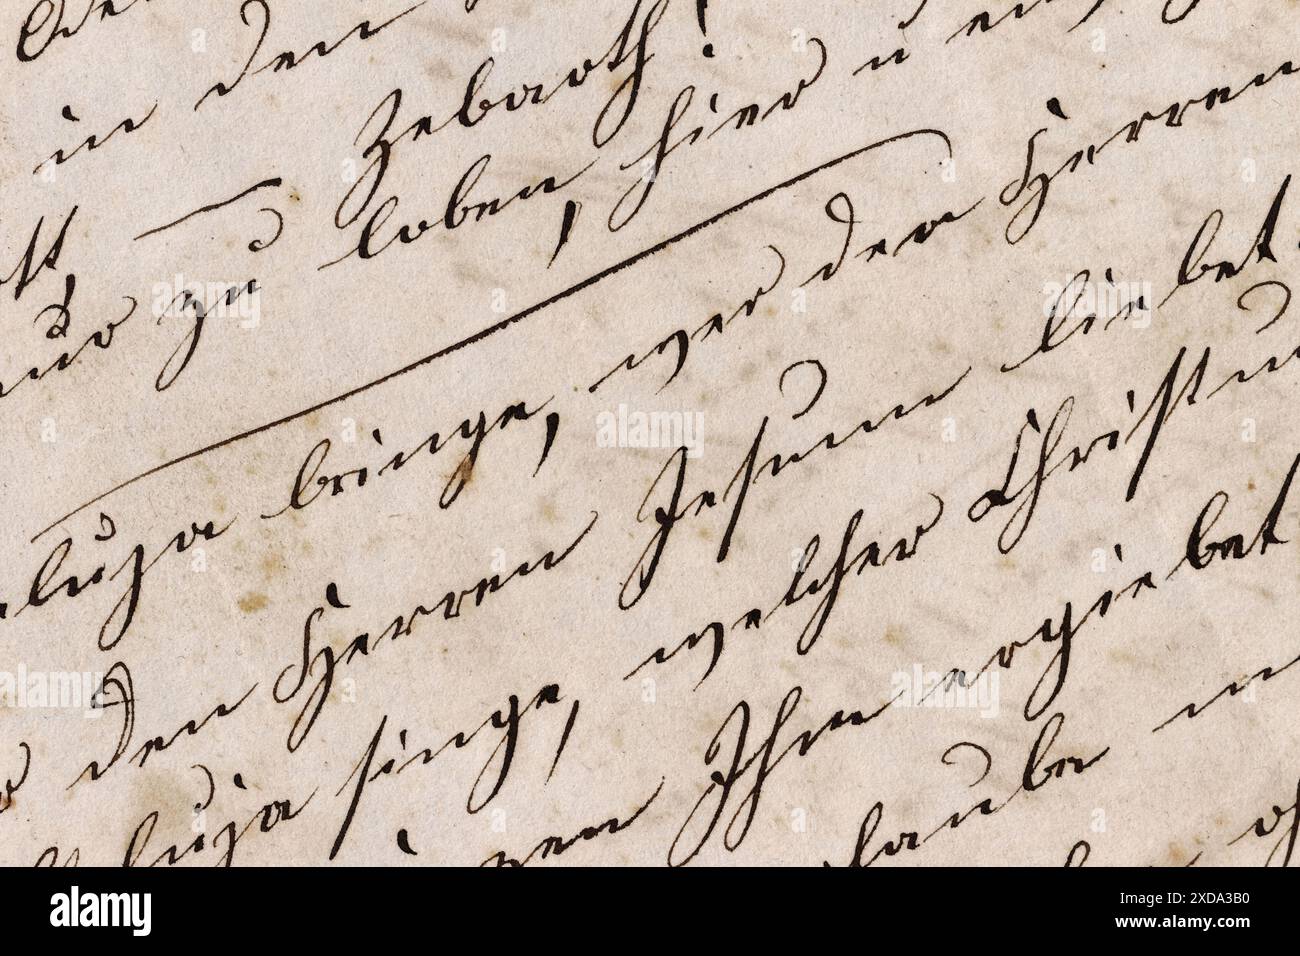 in den
Zebaoth!
zu loben, hier u
luja bringe, wer der Herren
den Herren Jesum liebet
luja singe, welcher Christu
Ihm ergiebet
alamy
Image ID: 2XDA3B0
www.alamy.com